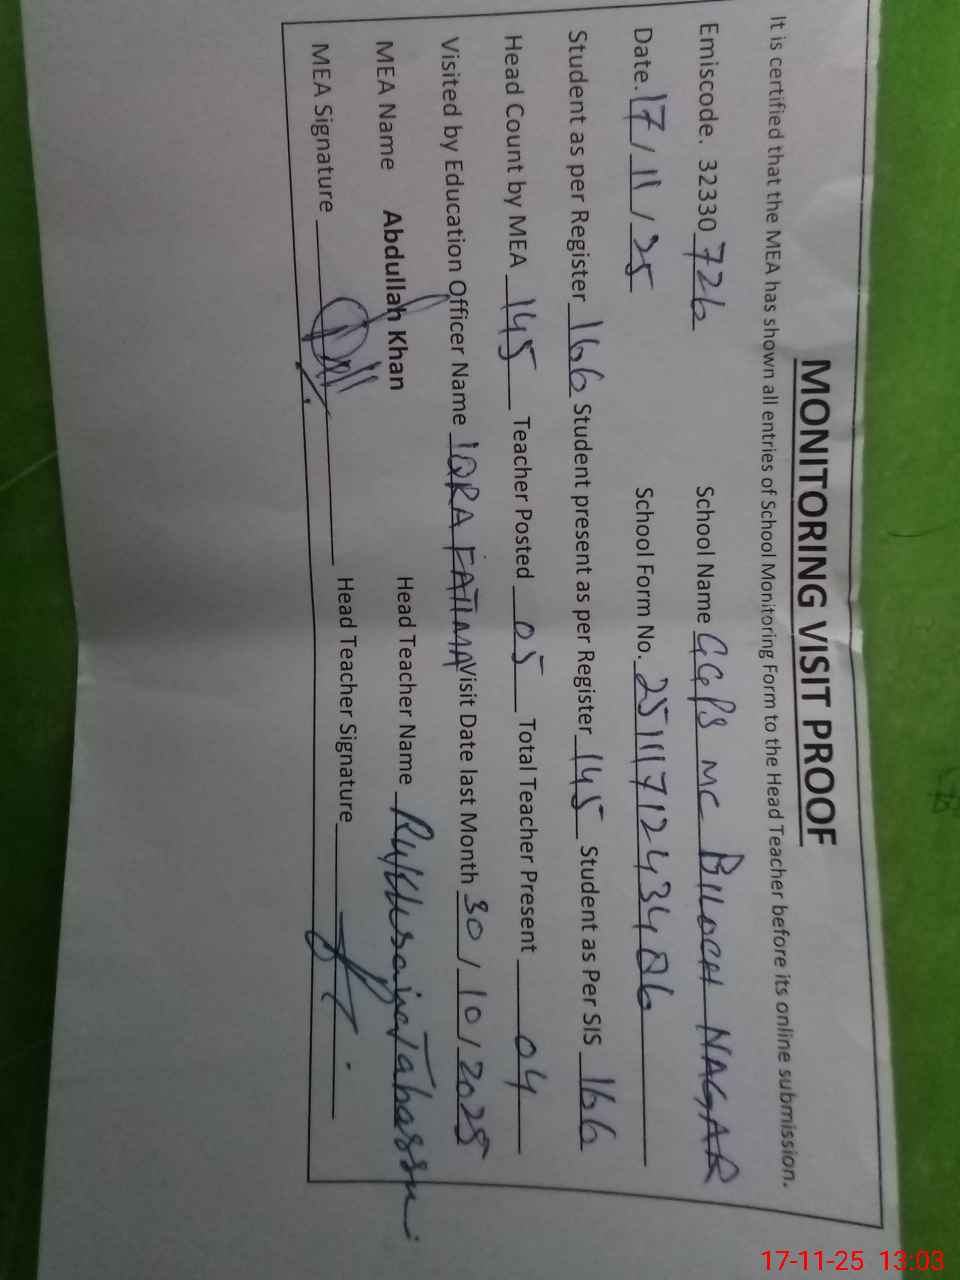 MONITORING VISIT PROOF
It is certified that the MEA has shown all entries of School Monitoring Form to the Head Teacher before its online submission.
Emiscode. 32330726 School Name GGPS MC BILOCH NAGAR
Date. 17/11/25 School Form No. 251117124340
Student as per Register 166 Student present as per Register 145 Student as Per SIS 166
Head Count by MEA 145 Teacher Posted 05 Total Teacher Present 04
Visited by Education Officer Name IQRA FATIMA Visit Date last Month 30/10/2025
MEA Name Abdullah Khan Head Teacher Name
MEA Signature Head Teacher Signature
17-11-25 13:03